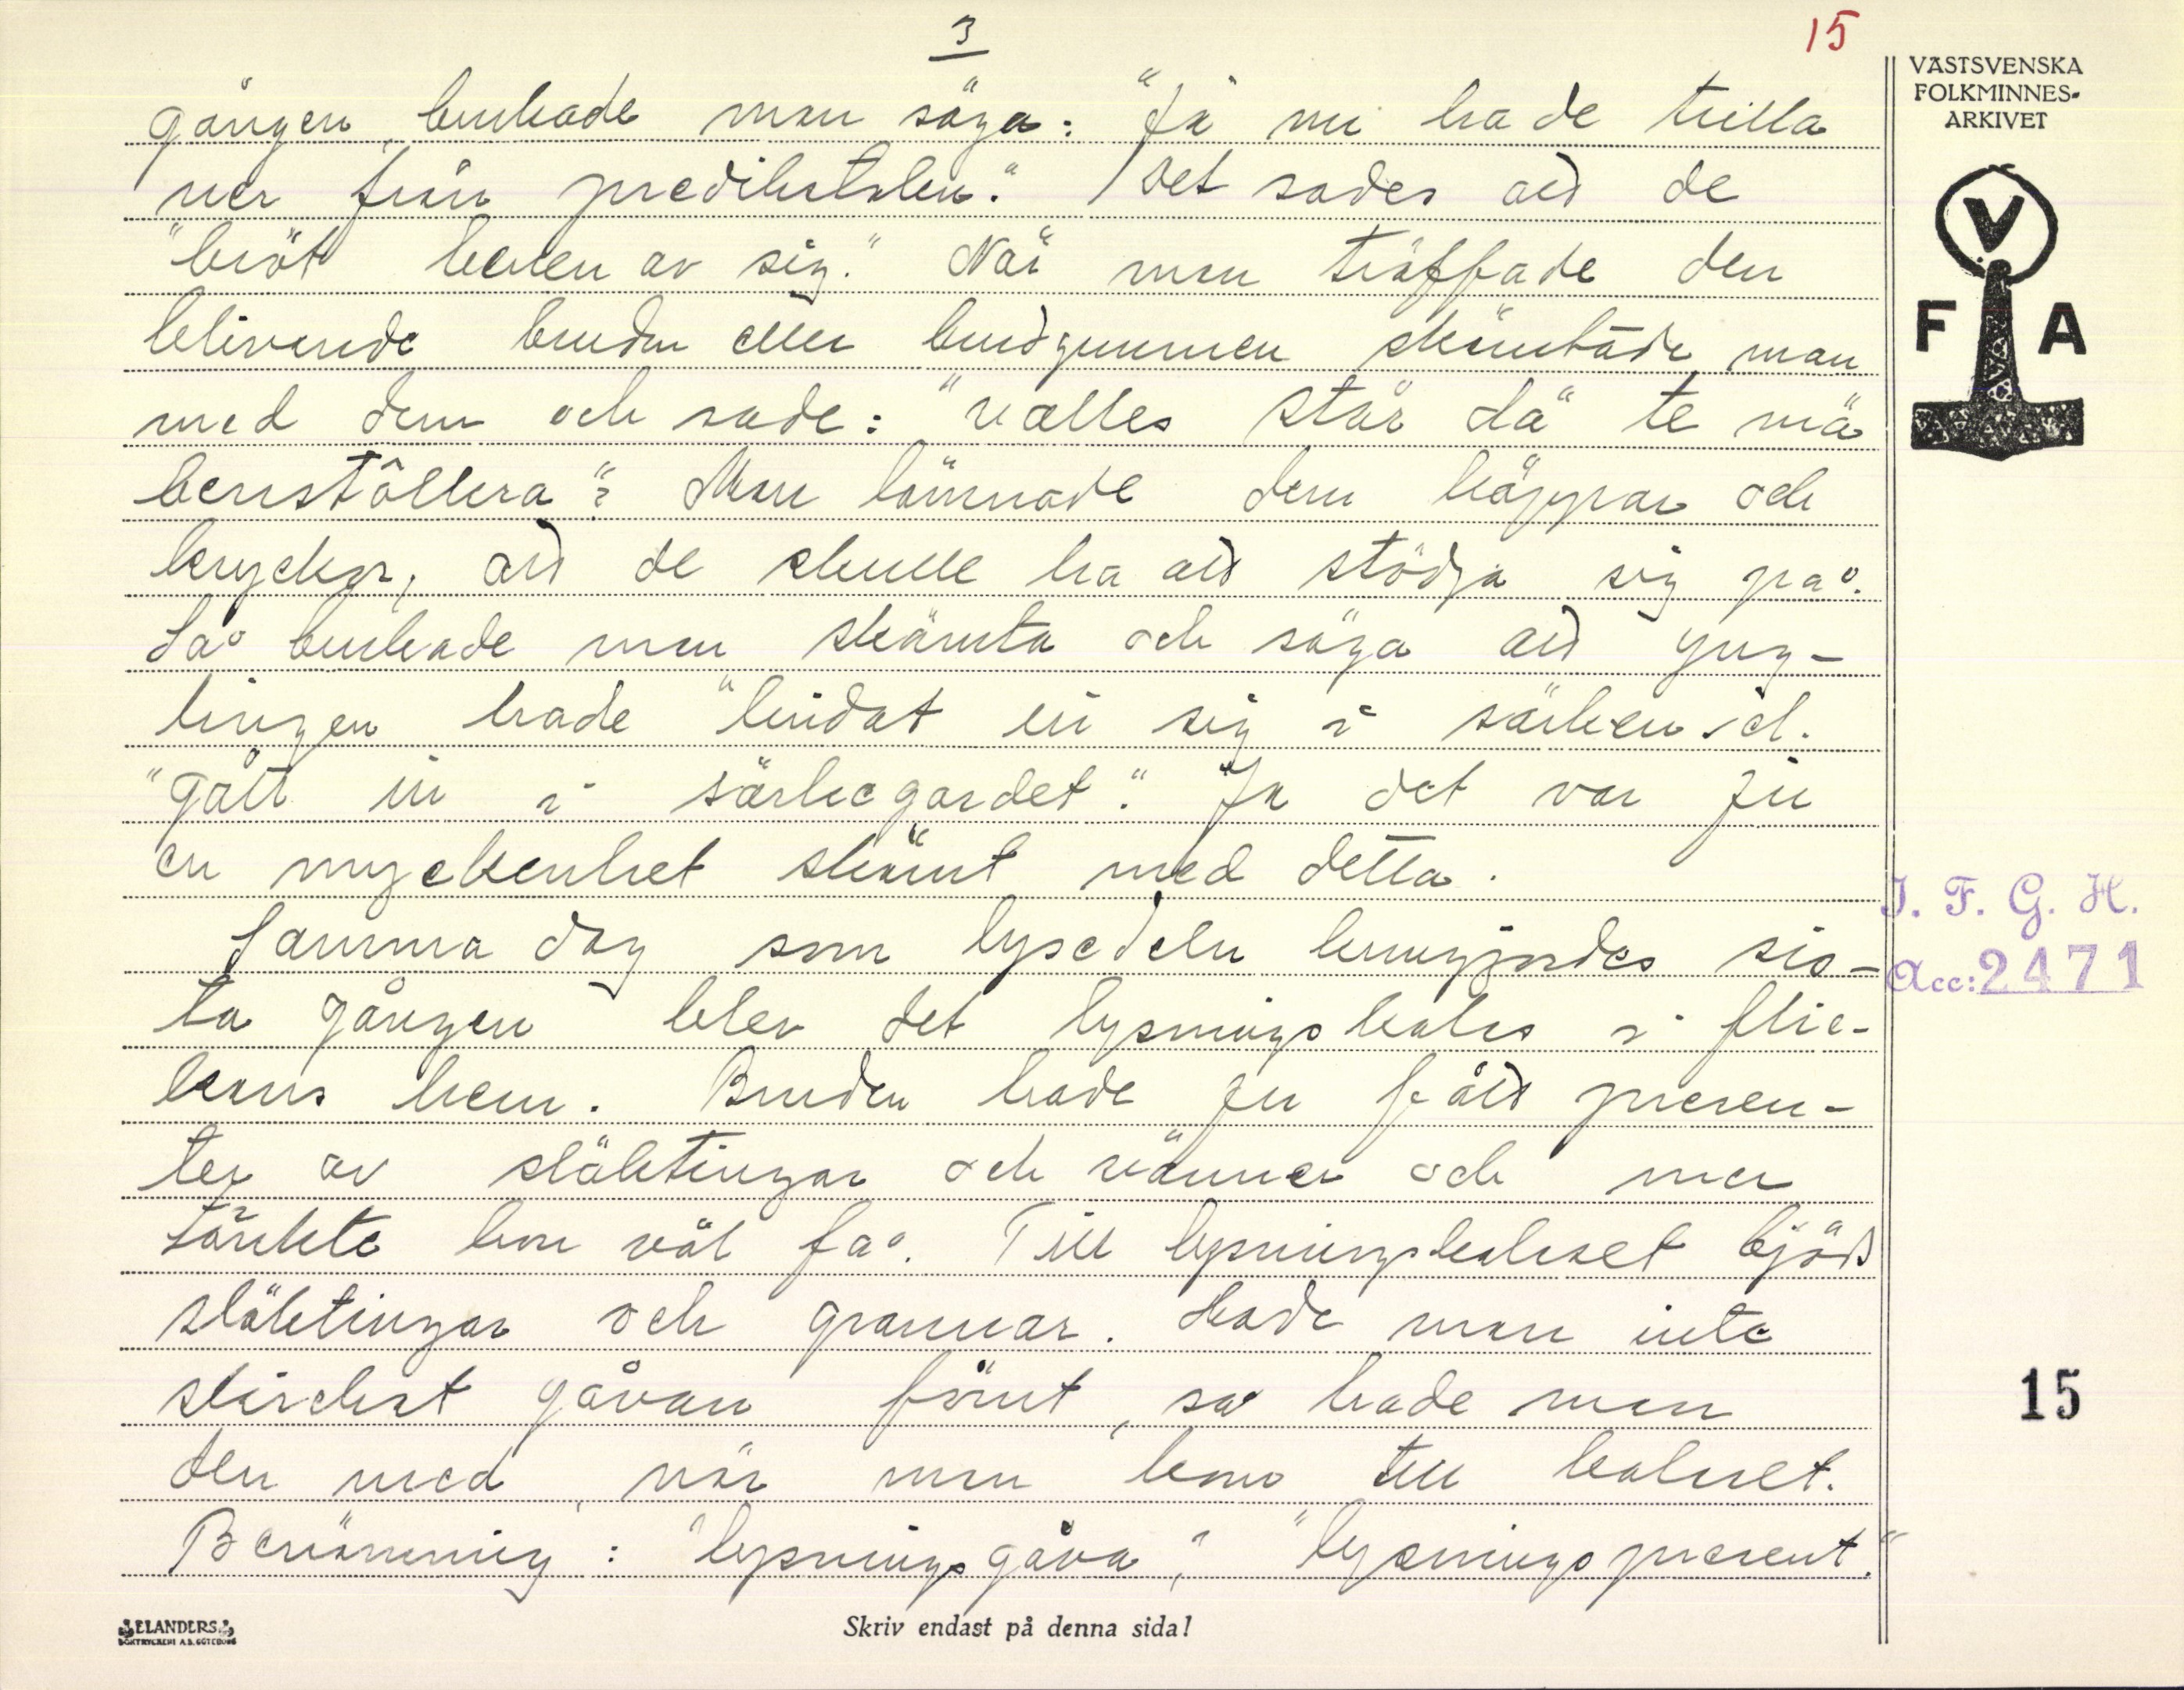 3
15
gången, brukade man säga: "Ja nu ha de trilla
ner från predikstolen." Det sades att de
"bröt benen av sig." När man träffade den
blivande bruden eller brudgummen skämtade man
med dem och sade: "valles står dä te mä
benstôllera"? Man lämnade dem käppar och
kryckor, att de skulle ha att stödja sig på.
Så brukade man skämta och säga att yng-
lingen hade "lindat in sig i särken el.
"gått in i särkegardet." Ja det var ju
en myckenhet skämt med detta.
Samma dag som lysedeln kungjordes sis-
ta gången blev det lysningskalas i flic-
kans hem. Bruden hade ju fått presen-
ter av släktingar och vänner och mer
tänkte hon väl få. Till lysningskalaset bjöds
släktingar och grannar. Hade man inte
skickat gåvan förut, så hade man
den med, när man kom till kalaset.
Benämning: "lysningsgåva", "lysningspresent."
VÄSTSVENSKA
FOLKMINNES-
ARKIVET
V
F A
I. F. G. H.
Acc: 2471
15
ELANDERS
BOKTRYCKERI A.B. GÖTEBORG
Skriv endast på denna sida!